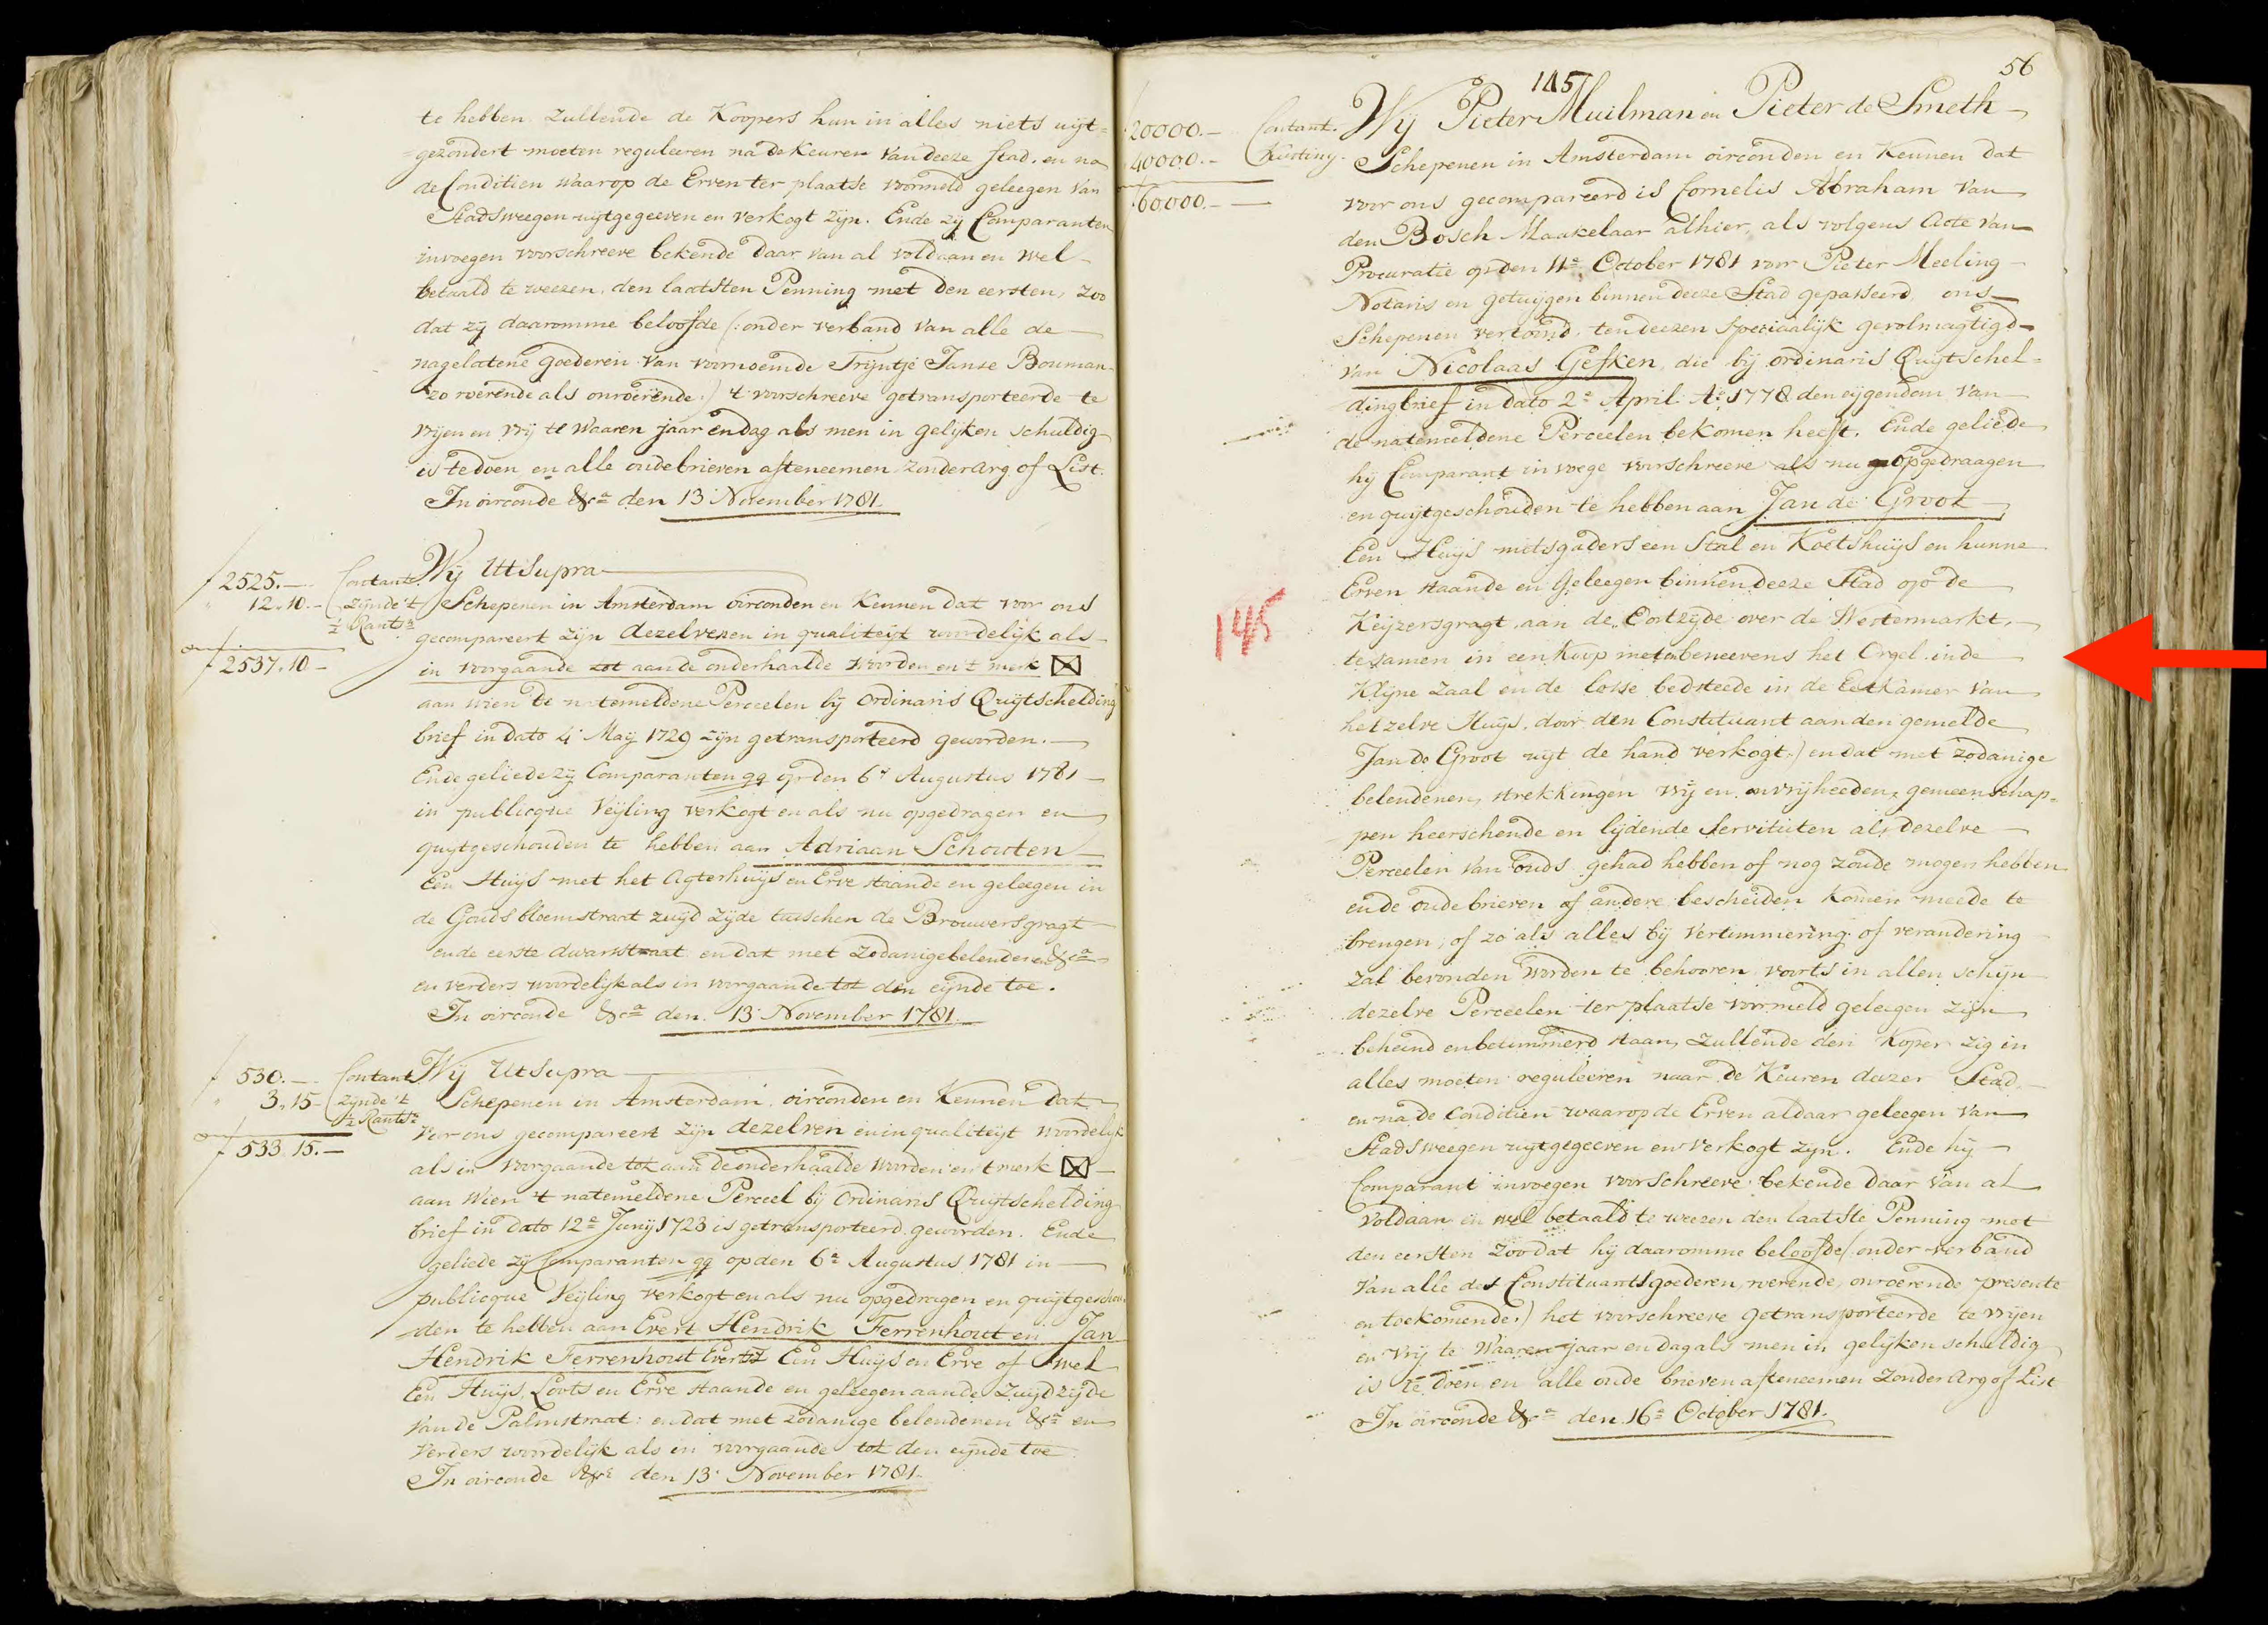 te hebben. Zullende de Koopers hun in alles niets uijt=
=gezondert moeten reguleeren na de Keuren van deeze Stad. en na
de Conditien waarop de Erven ter plaatse voormeld geleegen van
Stadsweegen uijtgegeeven en verkogt zijn. Ende zij Comparanten
invoegen voorschreeve bekende daar van al voldaan en wel
betaald te weezen. den laatsten Penning met den eersten, zoo
dat zij daaromme beloofde (: onder verband van alle de
nagelatene goederen van voornoemde Trijntje Janse Bouman
zo roerende als onroerende:) 't voorschreeve getransporteerde te
vrijen en vrij te waaren jaar en dag als men in gelijken schuldig
is te doen en alle oude brieven afteneemen zonder arg of List.
In oirconde &ca den 13 November 1781.
ƒ 2525.— Contant
" 12.10.— zijnde 't
½ Rants
ƒ 2537.10—
Wij Ut Supra
Schepenen in Amsterdam oirconden en Kennen dat voor ons
gecompareert zijn dezelven en in qualiteijt woordelijk als
in voorgaande tot aan de onderhaalde woorden en 't merk ☒
aan wien de natemeldene Perceelen bij ordinaris Quijtschelding
brief in dato 4 Maij 1729 zijn getransporteerd geworden.
Ende geliede zij Comparanten qq op den 6e Augustus 1781
in publicque Veijling verkogt en als nu opgedragen en
quijtgeschouden te hebben aan Adriaan Schouten
Een Huijs met het Agterhuijs en Erve staande en geleegen in
de Goudsbloemstraat zuijd zijde tusschen de Brouwersgragt
en de eerste dwarsstraat en dat met zodanige belendenen &ca
en verders woordelijk als in voorgaande tot den eijnde toe.
In oirconde &ca den 13 November 1781.
ƒ 530.— Contant
" 3.15— zijnde 't
½ Rants
ƒ 533.15.—
Wij Ut Supra
Schepenen in Amsterdam oirconden en Kennen dat
voor ons gecompareert zijn dezelven en in qualiteijt woordelijk
als in voorgaande tot aan de onderhaalde woorden en 't merk ☒
aan wien 't natemeldene Perceel bij ordinaris Quijtschelding
brief in dato 12e Junij 1723 is getransporteerd geworden. Ende
geliede zij Comparanten qq op den 6e Augustus 1781 in
publicque Veijling verkogt en als nu opgedragen en quijtgeschou
den te hebben aan Evert Hendrik Ferrenhout en Jan
Hendrik Ferrenhout Evertsz Een Huijs en Erve of wel
Een Huijs, Loots en Erve staande en geleegen aan de Zuijdzijde
van de Palmstraat: en dat met zodanige belendenen &ca en
verders woordelijk als in voorgaande tot den eijnde toe
In oirconde &ca den 13 November 1781.
56
145
ƒ 20000.— Contant.
40000.— Kusting.
ƒ 60000.—
Wij Pieter Muilman en Pieter de Smeth
Schepenen in Amsterdam oirconden en Kennen dat
voor ons gecompareerd is Cornelis Abraham van
den Bosch Maakelaar alhier, als volgens Acte van
Procuratie op den 11e October 1781 voor Pieter Meeling
Notaris en getuijgen binnen deeze Stad gepasseerd, ons
Schepenen vertoond, ten deezen speciaalijk gevolmagtigd
van Nicolaas Gefken, die bij ordinaris Quijtschel=
dingbrief in dato 2e April Ao 1778 den eijgendom van
de natemeldene Perceelen bekomen heeft. Ende geliede
hij Comparant in voege voorschreeve als nu opgedraagen
en quijtgeschouden te hebben aan Jan de Groot
Een Huijs mitsgaders een Stal en Koetshuijs en hunne
Erven staande en geleegen binnen deeze Stad op de
Keijzersgragt, aan de Oostzijde over de Westermarkt,
145
te samen in een Koop met beneevens het Orgel in de
Klijne Zaal en de losse bedsteede in de Eetkamer van
hetzelve Huijs, door den Constituant aan den gemelde
Jan de Groot uijt de hand verkogt.) en dat met zodanige
belendenen, strekkingen vrij en onvrijheeden, gemeenschap=
pen heerschende en lijdende Servituten als dezelve
Perceelen van ouds gehad hebben of nog zoude mogen hebben
en de oude brieven of andere bescheiden komen meede te
brengen; of zo als alles bij vertimmering of verandering
zal bevonden worden te behooren, voorts in allen schijn
dezelve Perceelen ter plaatse voormeld geleegen zijn
beheind en betimmerd staan, zullende den Koper zig in
alles moeten reguleeren naar de Keuren deezer Stad
en na de Conditien waarop de Erven aldaar geleegen van
Stadsweegen uijtgegeeven en verkogt zijn. Ende hij
Comparant invoegen voorschreeve bekende daar van al
voldaan en wel betaald te weezen den laatste Penning met
den eersten zoo dat hij daaromme beloofde (: onder verband
van alle des Constituants goederen, roerende, onroerende presente
en toekomende.) het voorschreeve getransporteerde te vrijen
en vrij te waaren jaar en dag als men in gelijken schuldig
is te doen en alle oude brieven afteneemen zonder arg of List
In oirconde &ca den 16e October 1781.